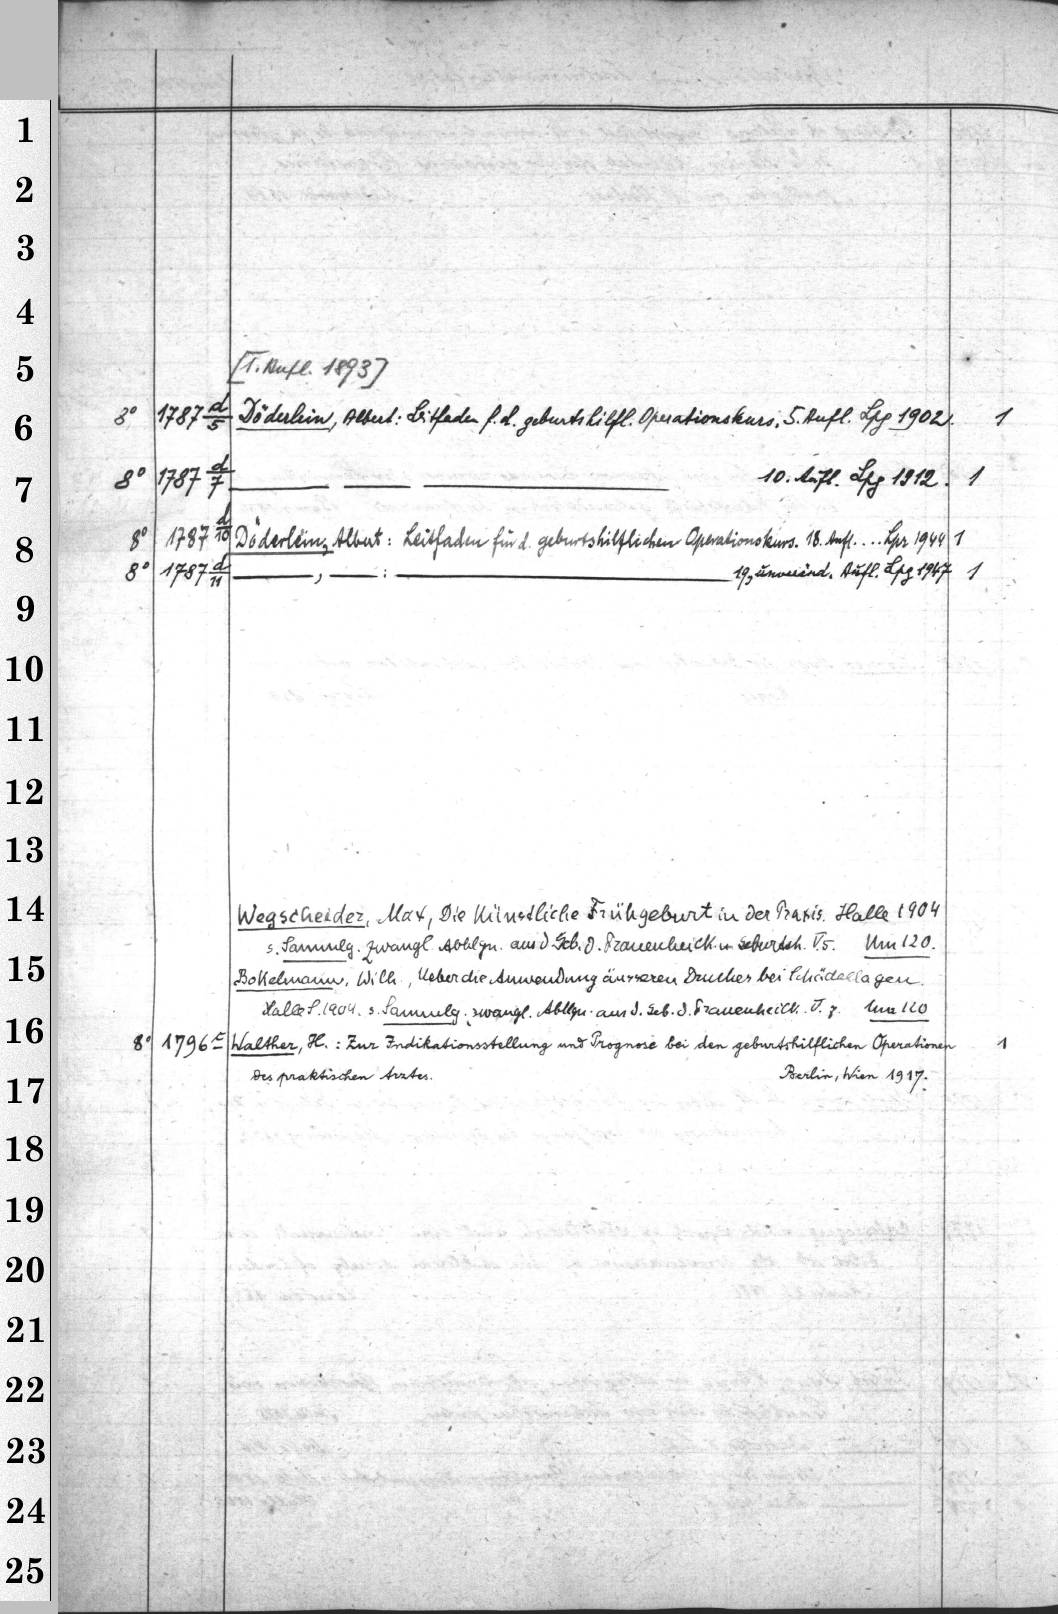 1
2
3
4
5
[1. Aufl. 1893]
6
8° 1787 d/5 Döderlein, Albert: Leitfaden f. d. geburtshilfl. Operationskurs. 5. Aufl. Lpg 1902. 1
7
8° 1787 d/7 ——— ——— ——— 10. Aufl. Lpg 1912. 1
8
8° 1787 d/10 Döderlein, Albert: Leitfaden für d. geburtshilflichen Operationskurs. 18. Aufl. ... Lpz 1944 1
8° 1787 d/11 ———, ———: ——— 19., unveränd. Aufl. Lpg 1947 1
9
10
11
12
13
14
Wegscheider, Max, Die Künstliche Frühgeburt in der Praxis. Halle 1904
s. Sammlg. zwangl. Abhlgn. aus d. Geb. d. Frauenheilk. u. Geburtsh. V 5. Um 120.
15
Bokelmann, Wilh., Ueber die Anwendung äusseren Druckes bei Schädellagen.
Halle S. 1904. s. Sammlg. zwangl. Abhlgn. aus d. Geb. d. Frauenheilk. V. 7. Um 120
16
8° 1796 c Walther, H.: Zur Indikationsstellung und Prognose bei den geburtshilflichen Operationen 1
17
des praktischen Arztes. Berlin, Wien 1917.
18
19
20
21
22
23
24
25